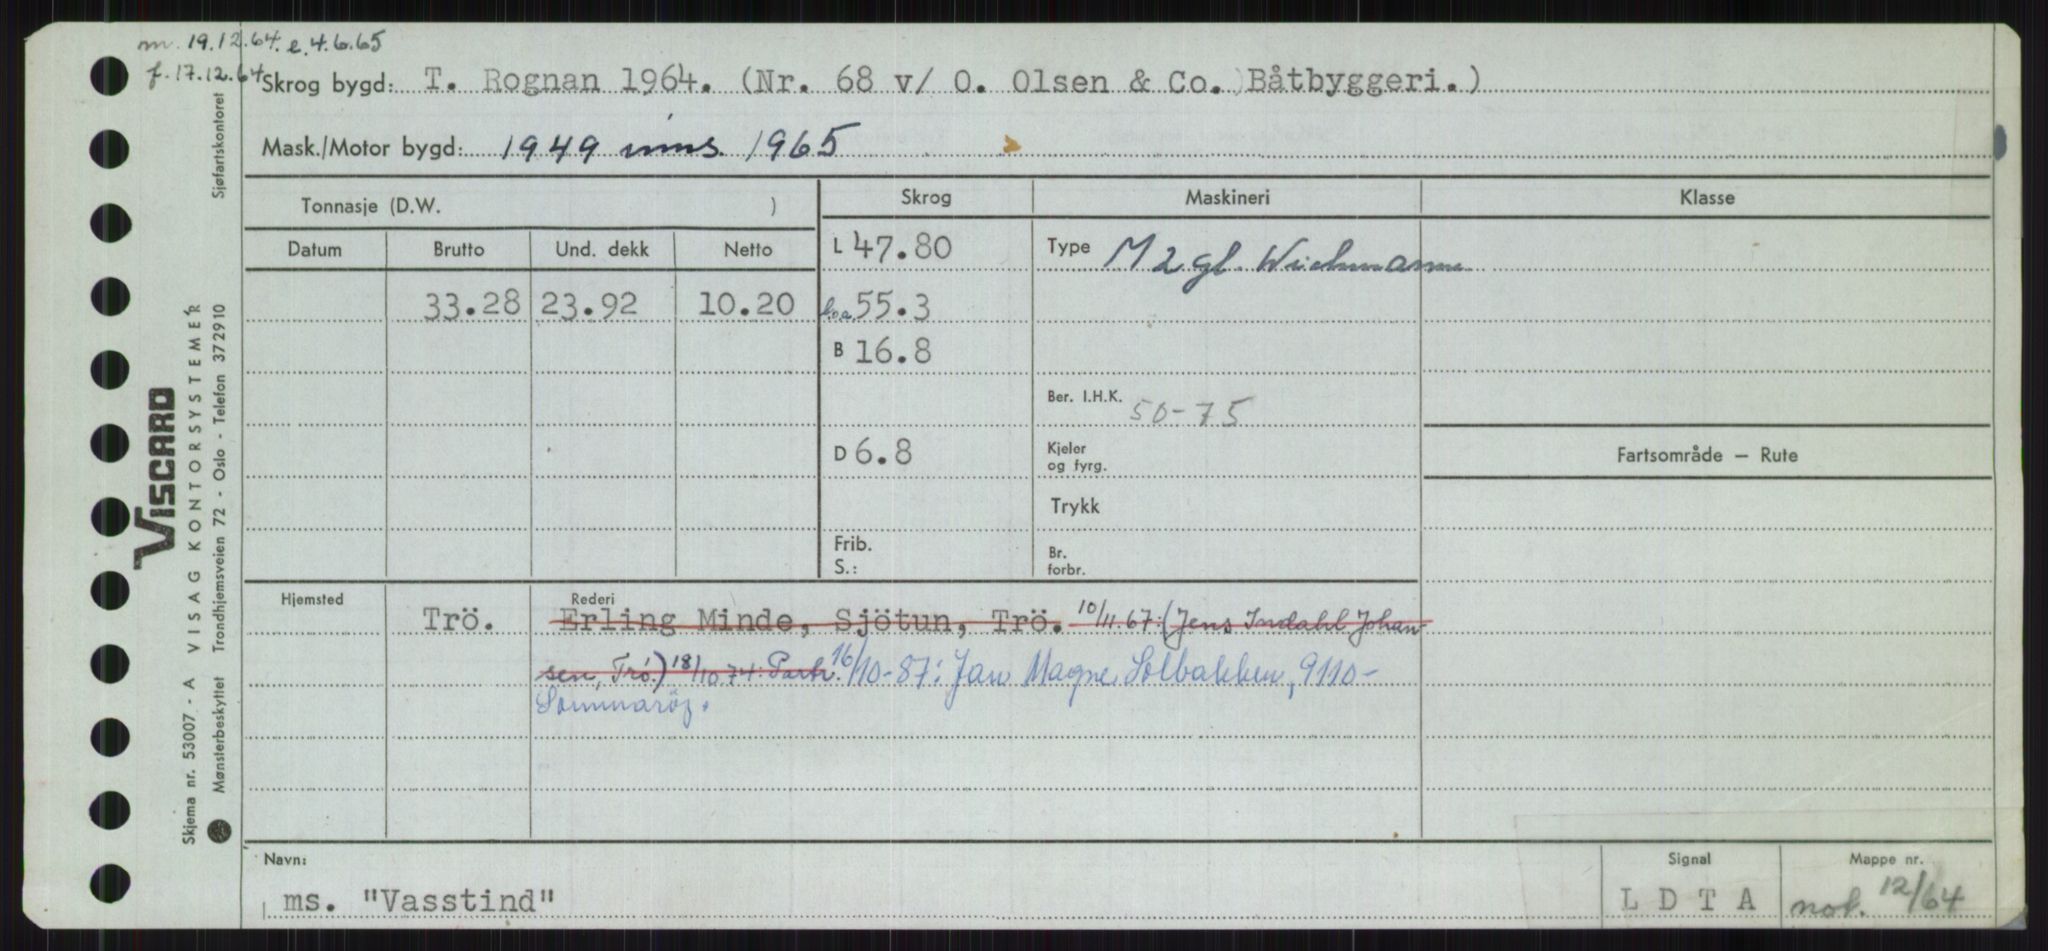 m. 19.12.64. e.4.6.65
f.17.12.64
Skrog bygd: T. Rognan 1964. (Nr. 68 v/ O. Olsen & Co. )Båtbyggeri.)
Mask./Motor bygd: 1949 inns. 1965
Tonnasje (D.W. )
Skrog
Maskineri
Klasse
Datum
Brutto
Und. dekk
Netto
L 47.80
Type M 2 gl. Wichmann
33.28 23.92 10.20
l.o.a. 55.3
B 16.8
Ber. I.H.K. 50-75
D 6.8
Kjeler
og fyrg.
Fartsområde — Rute
Trykk
Frib.
S.:
Br.
forbr.
Hjemsted
Rederi
Trö.
Erling Minde, Sjötun, Trö. 10/11.67: (Jens Indahl Johan-
sen, Trö.) 18/10 74: Partr. 16/10-87: Jan Magne Solbakken, 9110-
Sommaröy.
Navn:
ms. "Vasstind"
Signal
L D T A
Mappe nr.
not. 12/64
Sjøfartskontoret
VISCARD
VISAG KONTORSYSTEMER
Trondhjemsveien 72 - Oslo - Telefon 372910
Skjema nr. 53007 - A
Mønsterbeskyttet